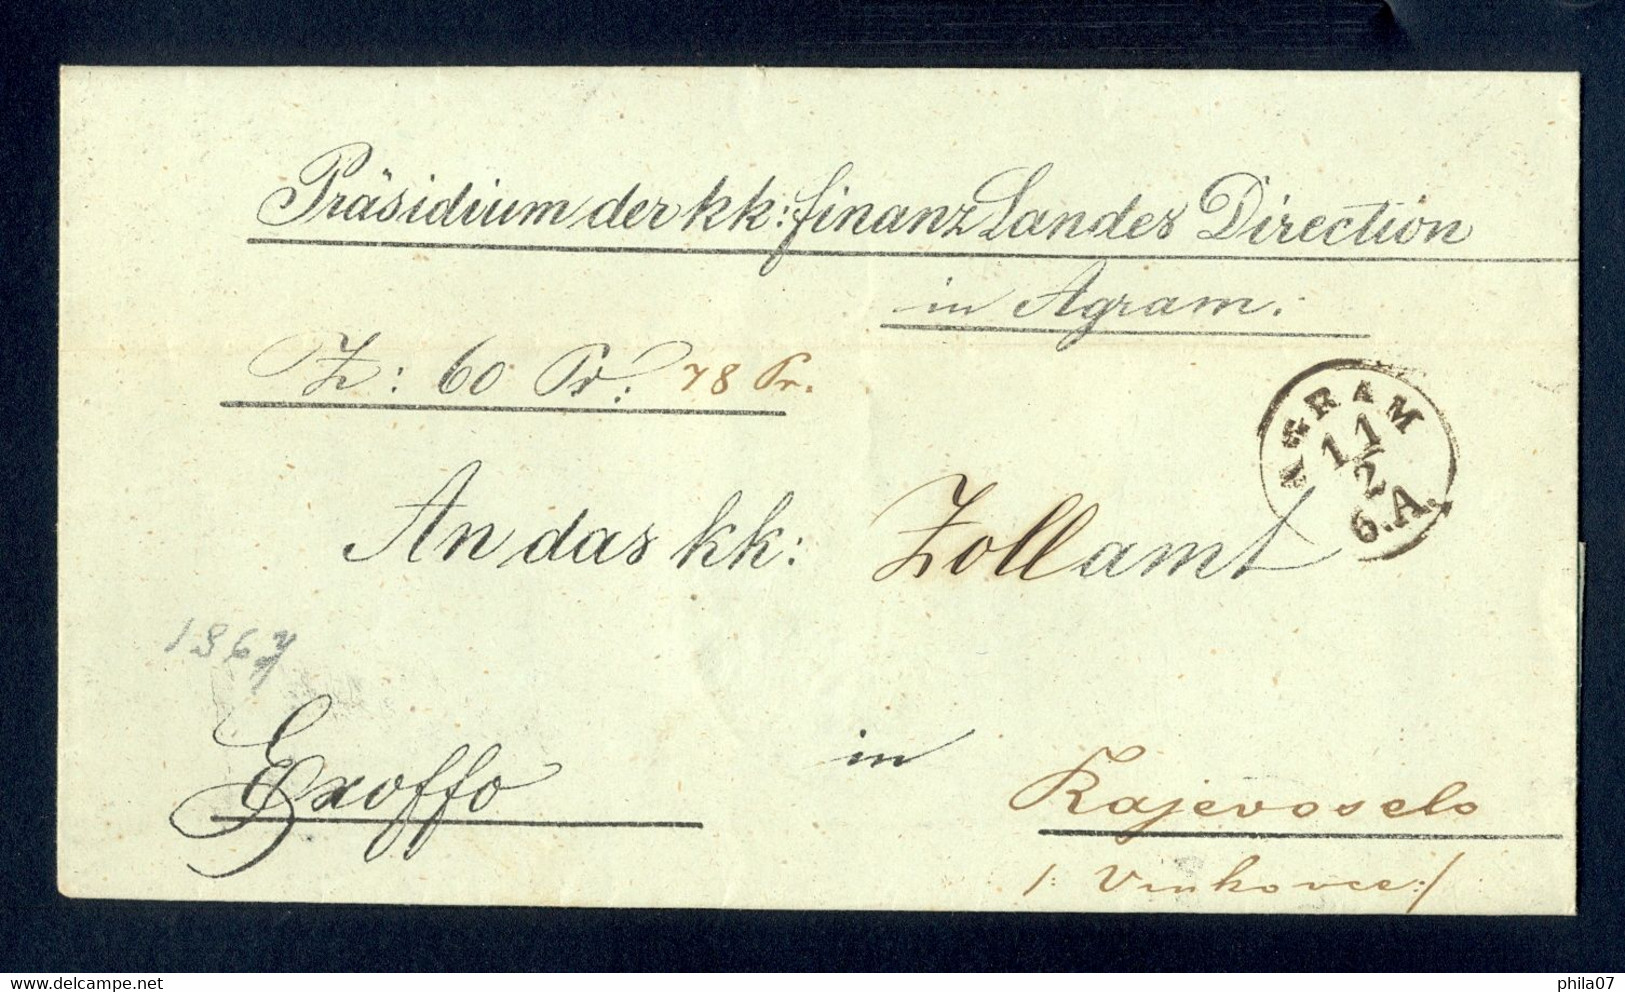 Präsidium der kk: finanz Landes Direction
in Agram.
Z: 60 Pr: 78 Pr.
AGRAM
11
2
6.A.
An das kk: Zollamt
1867
Exoffo
in
Rajevoselo
/: Vinkovce :/
delcampe.net
phila07